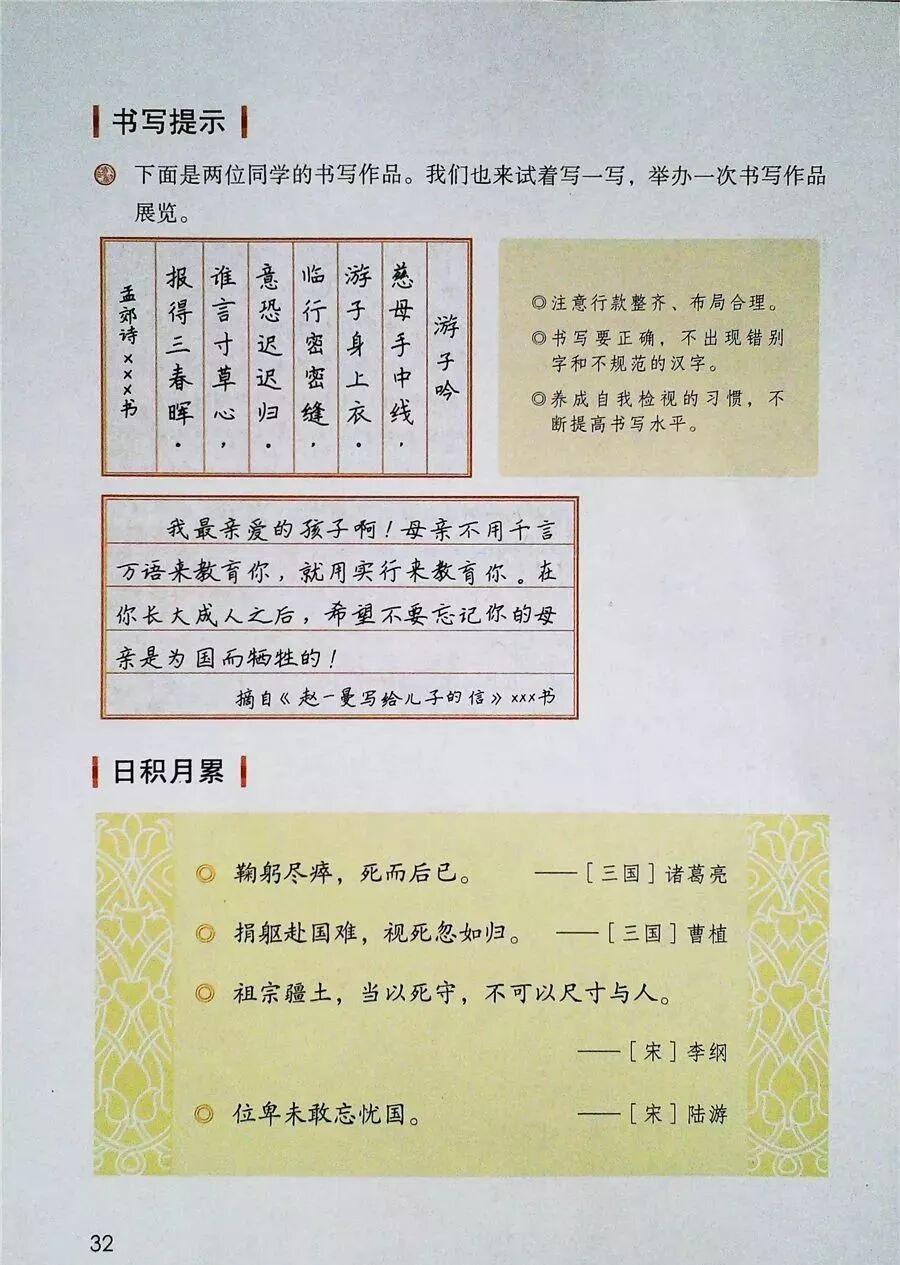 书写提示
下面是两位同学的书写作品。我们也来试着写一写，举办一次书写作品
展览。
游子吟
慈母手中线，
游子身上衣。
临行密密缝，
意恐迟迟归。
谁言寸草心，
报得三春晖。
孟郊诗×××书
◎注意行款整齐、布局合理。
◎书写要正确，不出现错别
字和不规范的汉字。
◎养成自我检视的习惯，不
断提高书写水平。
我最亲爱的孩子啊！母亲不用千言
万语来教育你，就用实行来教育你。在
你长大成人之后，希望不要忘记你的母
亲是为国而牺牲的！
摘自《赵一曼写给儿子的信》×××书
日积月累
◎ 鞠躬尽瘁，死而后已。 ——［三国］诸葛亮
◎ 捐躯赴国难，视死忽如归。 ——［三国］曹植
◎ 祖宗疆土，当以死守，不可以尺寸与人。
——［宋］李纲
◎ 位卑未敢忘忧国。 ——［宋］陆游
32